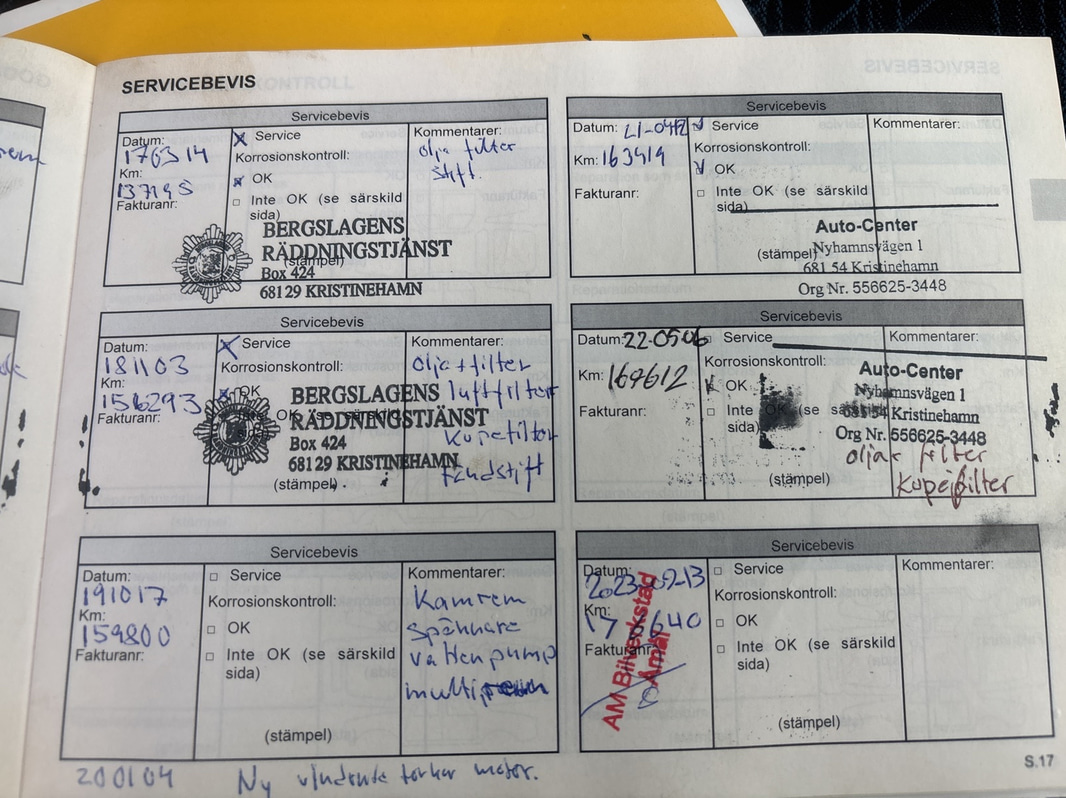 SERVICEBEVIS
Servicebevis
Datum:
170314
Km:
137195
Fakturanr:
Service
Korrosionskontroll:
OK
Inte OK (se särskild
sida)
Kommentarer:
olja filter
stift.
BERGSLAGENS
RÄDDNINGSTJÄNST
(stämpel)
Box 424
681 29 KRISTINEHAMN
Servicebevis
Datum: 21-0412
Km: 163419
Fakturanr:
Service
Korrosionskontroll:
OK
Inte OK (se särskild
sida)
Kommentarer:
Auto-Center
(stämpel)
Nyhamnsvägen 1
681 54 Kristinehamn
Org Nr. 556625-3448
Servicebevis
Datum:
181103
Km:
156293
Fakturanr:
Service
Korrosionskontroll:
OK
Inte OK (se särskild
Kommentarer:
olja+filter
luftfilter
Kupefilter
tändstift
BERGSLAGENS
RÄDDNINGSTJÄNST
Box 424
681 29 KRISTINEHAMN
(stämpel)
Servicebevis
Datum: 22-0506
Km: 169612
Fakturanr:
Service
Korrosionskontroll:
OK
Inte OK (se särskild
sida)
Kommentarer:
Auto-Center
Nyhamnsvägen 1
681 54 Kristinehamn
Org Nr. 556625-3448
olja filter
Kupefilter
(stämpel)
Servicebevis
Datum:
191017
Km:
159800
Fakturanr:
Service
Korrosionskontroll:
OK
Inte OK (se särskild
sida)
(stämpel)
Kommentarer:
Kamrem
spännare
vattenpump
Servicebevis
Datum:
2023-02-13
Km:
176640
Fakturanr:
AM Bilverkstad
Åmål
Service
Korrosionskontroll:
OK
Inte OK (se särskild
sida)
(stämpel)
Kommentarer:
200104 Ny vindrute torkar motor.
S.17